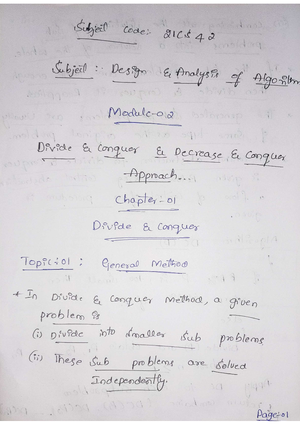 Subject Code: 21CS42
Subject: Design & Analysis of Algorithm
Module-02
Divide & Conquer & Decrease & Conquer
Approach...
Chapter:-01
Divide & Conquer
Topic:01: General Method
* In Divide & Conquer Method, a given
problem is
(i) Divide into smaller sub problems
(ii) These Sub problems are Solved
Independently.
Page:01